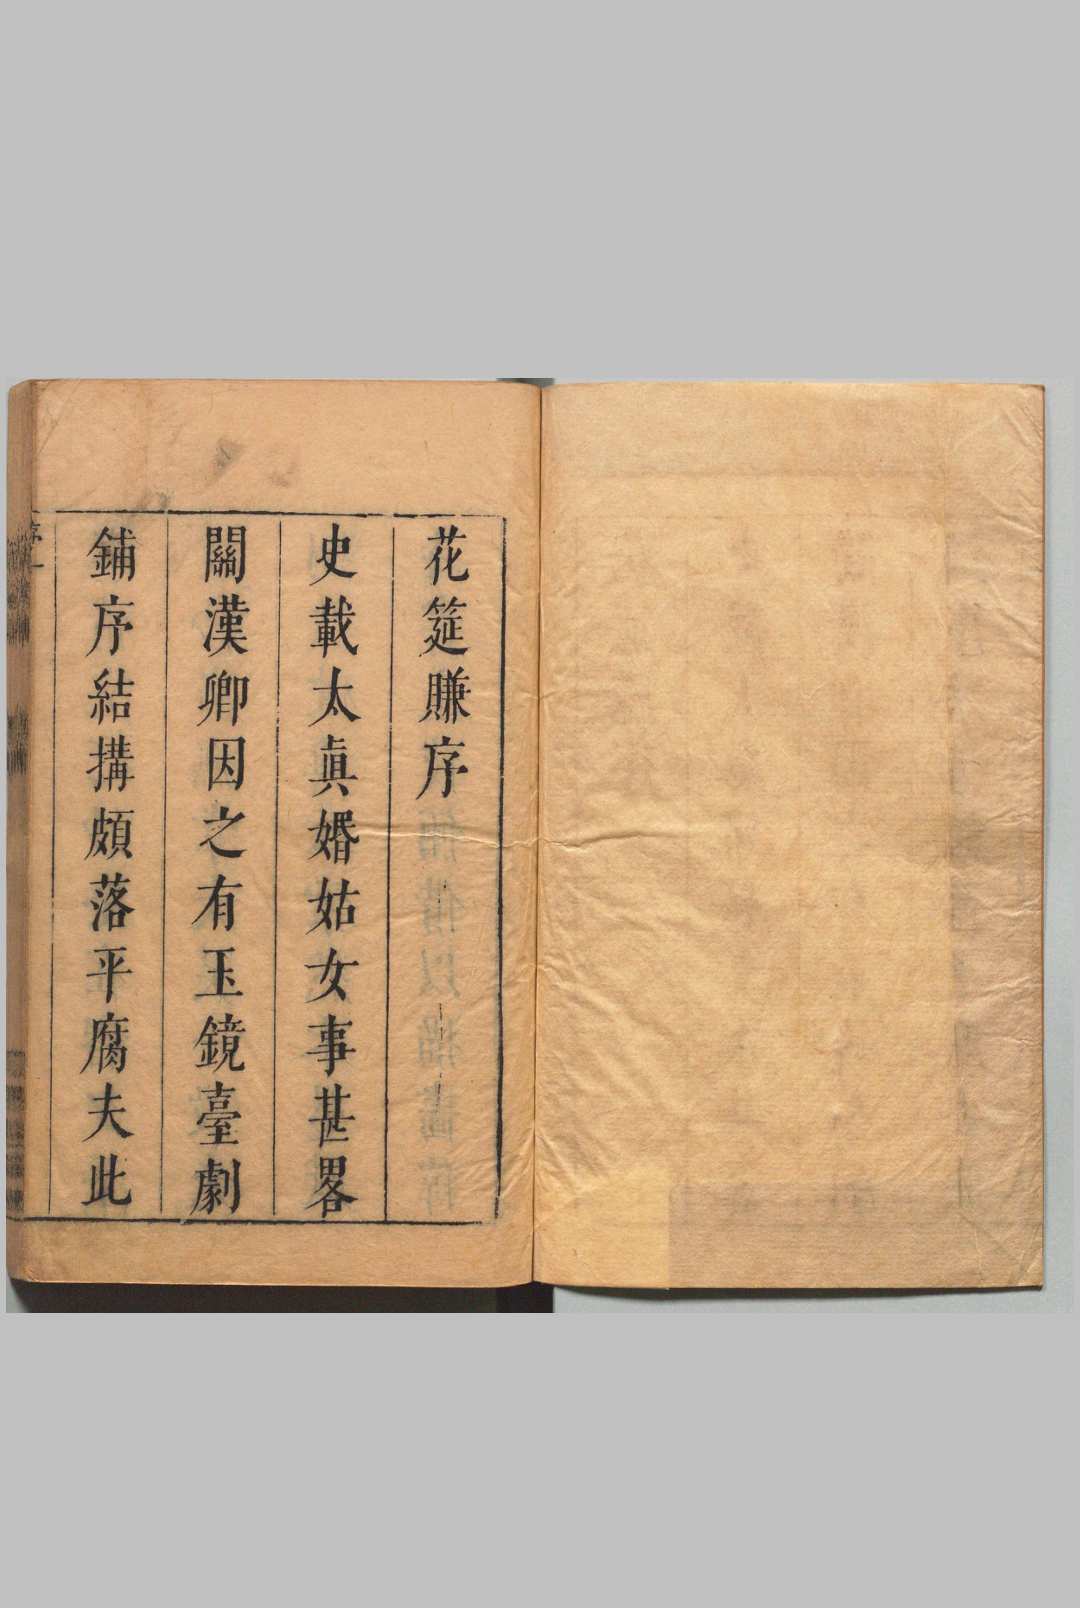 花筵賺序
史載太眞婚姑女事甚畧
關漢卿因之有玉鏡臺劇
鋪序結搆頗落平腐夫此
序一